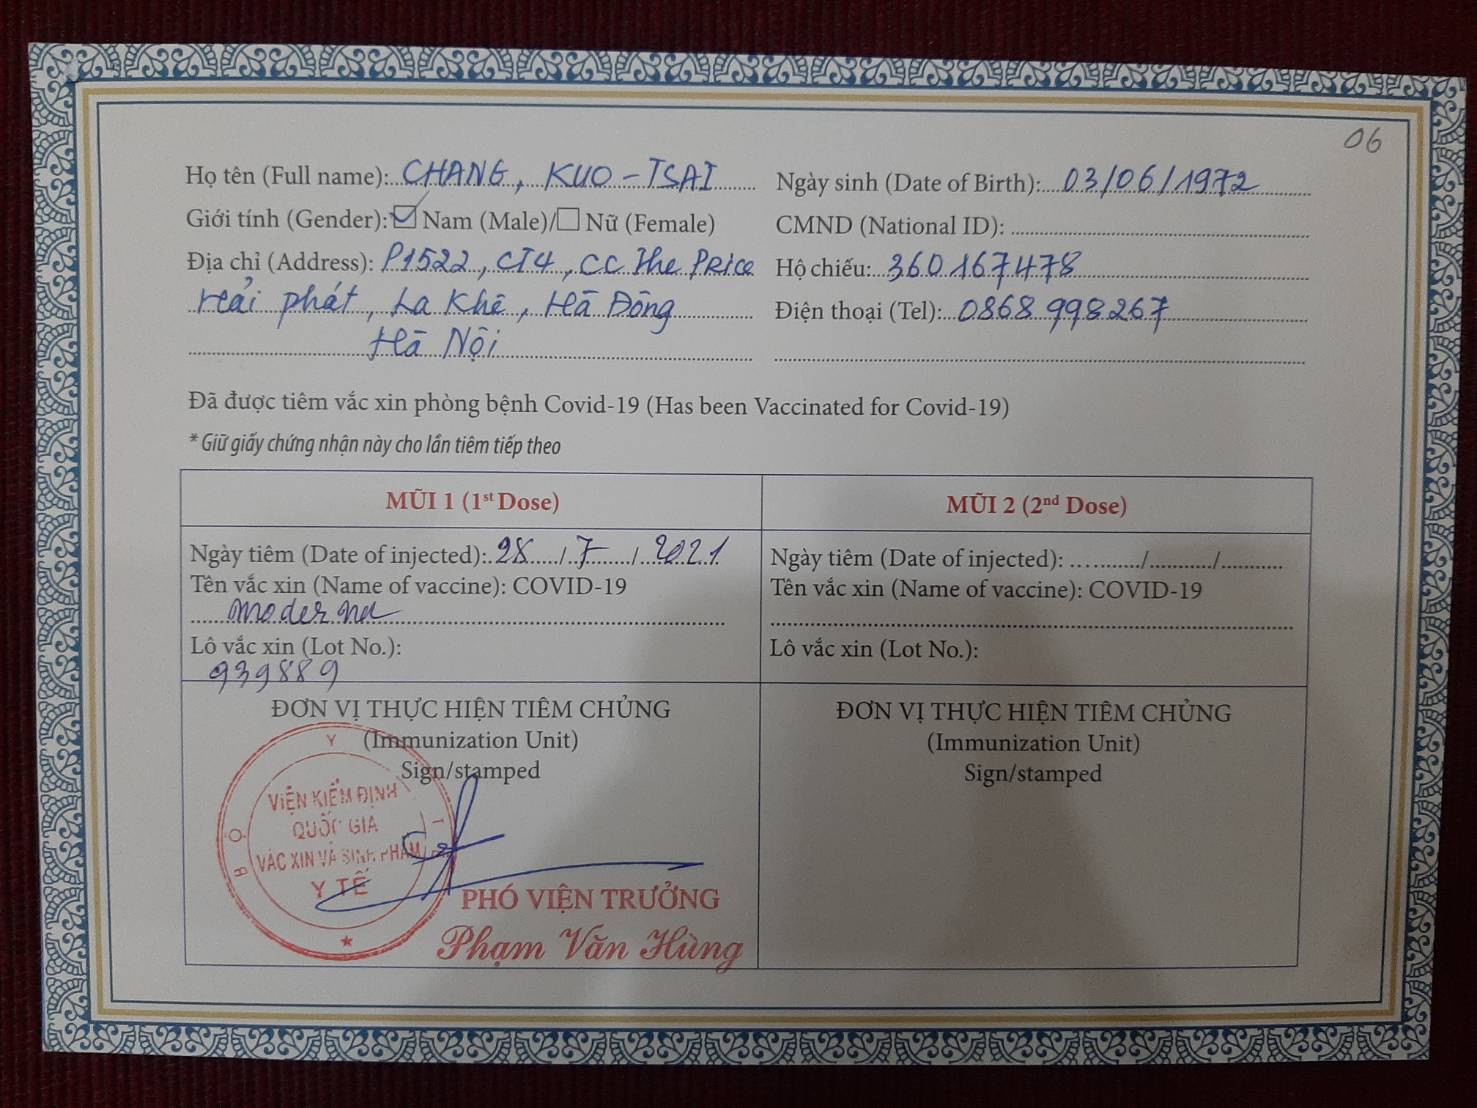 06
Họ tên (Full name): CHANG, KUO-TSAI
Ngày sinh (Date of Birth): 03/06/1972
Giới tính (Gender): ☑ Nam (Male)/☐ Nữ (Female)
CMND (National ID):
Địa chỉ (Address): P1522, CT4, CC The Price
Hải phát, La Khê, Hà Đông
Hà Nội
Hộ chiếu: 360167478
Điện thoại (Tel): 0868 998267
Đã được tiêm vắc xin phòng bệnh Covid-19 (Has been Vaccinated for Covid-19)
* Giữ giấy chứng nhận này cho lần tiêm tiếp theo
MŨI 1 (1st Dose)
Ngày tiêm (Date of injected): 28/7/2021
Tên vắc xin (Name of vaccine): COVID-19
Moderna
Lô vắc xin (Lot No.):
939889
ĐƠN VỊ THỰC HIỆN TIÊM CHỦNG
(Immunization Unit)
Sign/stamped
BỘ Y TẾ
VIỆN KIỂM ĐỊNH
QUỐC GIA
VẮC XIN VÀ SINH PHẨM
Y TẾ
PHÓ VIỆN TRƯỞNG
Phạm Văn Hùng
MŨI 2 (2nd Dose)
Ngày tiêm (Date of injected): ........../........../..........
Tên vắc xin (Name of vaccine): COVID-19
Lô vắc xin (Lot No.):
ĐƠN VỊ THỰC HIỆN TIÊM CHỦNG
(Immunization Unit)
Sign/stamped